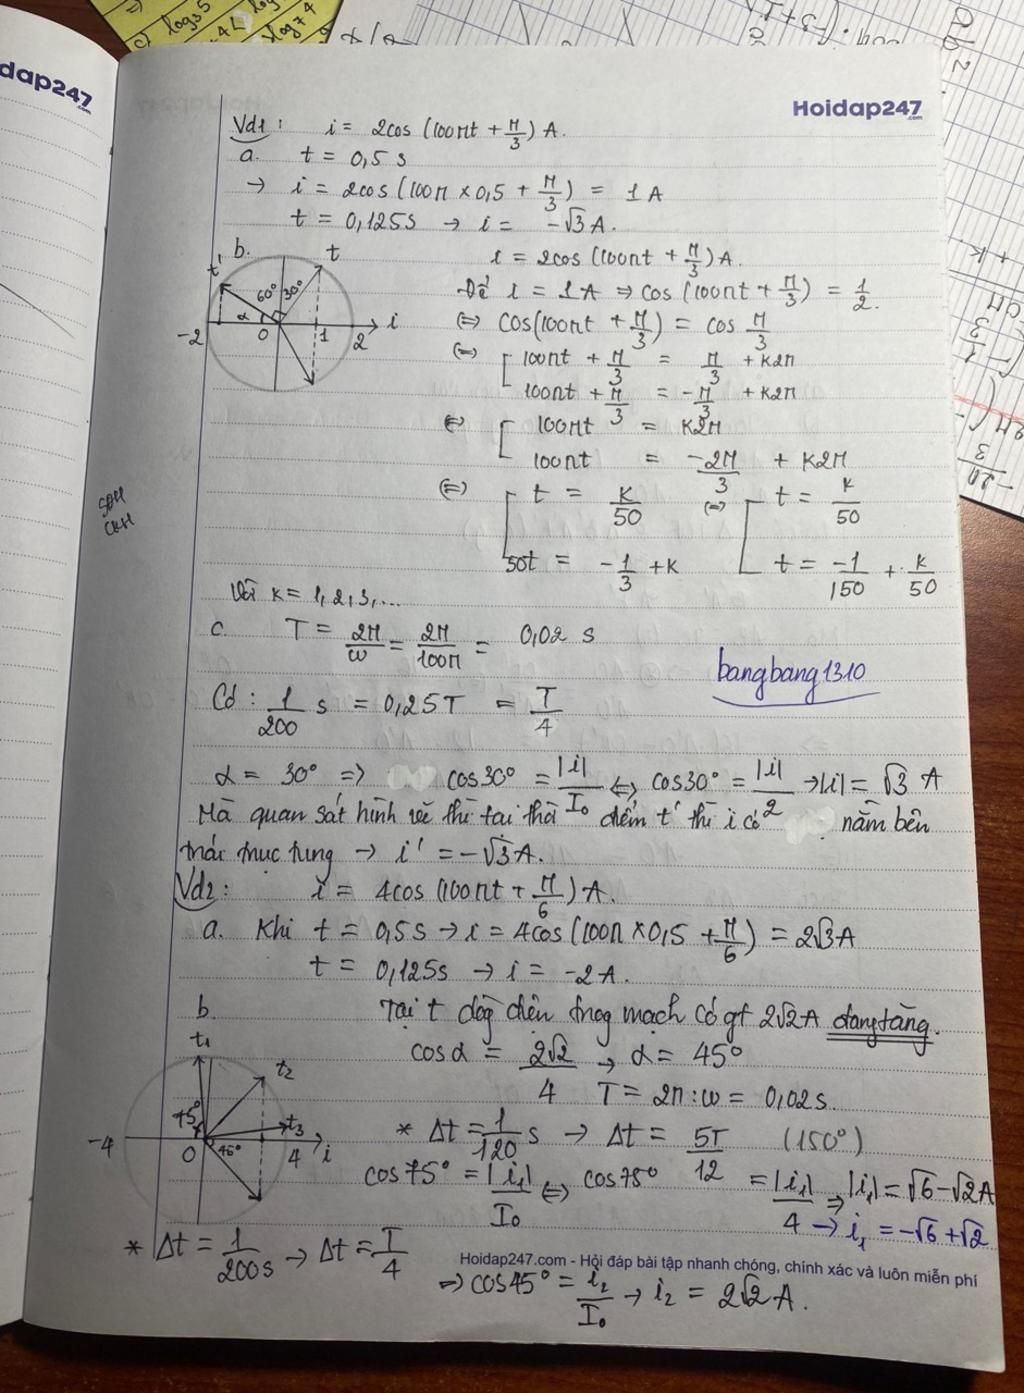 dap247
.com
Hoidap247
.com
Vd1: i = 2cos (100πt + π/3) A.
a. t = 0,5 s
→ i = 2cos (100π × 0,5 + π/3) = 1 A
t = 0,125s → i = -√3 A.
b.
t' 60° 30° t
α
-2 0 1 2 i
i = 2cos (100πt + π/3) A.
Để i = 1A ⇒ cos (100πt + π/3) = 1/2.
⇔ cos(100πt + π/3) = cos π/3
⇔ [ 100πt + π/3 = π/3 + k2π
100πt + π/3 = -π/3 + k2π
⇔ [ 100πt = k2π
100πt = -2π/3 + k2π
⇔ [ t = k/50 ⇔ [ t = k/50
50t = -1/3 + k t = -1/150 + k/50
Với k = 1, 2, 3, ...
c. T = 2π/ω = 2π/100π = 0,02 s
bangbang1310
Có: 1/200 s = 0,25T = T/4
α = 30° => cos30° = |i|/I₀ ⇔ cos30° = |i|/2 → |i| = √3 A
Mà quan sát hình vẽ thì tại thời điểm t' thì i có nằm bên
trái trục tung → i' = -√3 A.
Vd2: i = 4cos (100πt + π/6) A.
a. Khi t = 0,5s → i = 4cos (100π × 0,5 + π/6) = 2√3 A
t = 0,125s → i = -2 A.
b. Tại t dòg điện trog mạch có gt 2√2 A đang tăng.
t₁ t₂
75° t₃
45°
-4 0 4 i
cos α = 2√2/4 → α = 45°
T = 2π : ω = 0,02s.
* Δt = 1/120 s → Δt = 5T/12 (150°)
cos75° = |i₁|/I₀ ⇔ cos75° = |i₁|/4 ⇒ |i₁| = √6 - √2 A
→ i₁ = -√6 + √2
* Δt = 1/200s → Δt = T/4
Hoidap247.com - Hỏi đáp bài tập nhanh chóng, chính xác và luôn miễn phí
=> cos45° = i₂/I₀ → i₂ = 2√2 A.